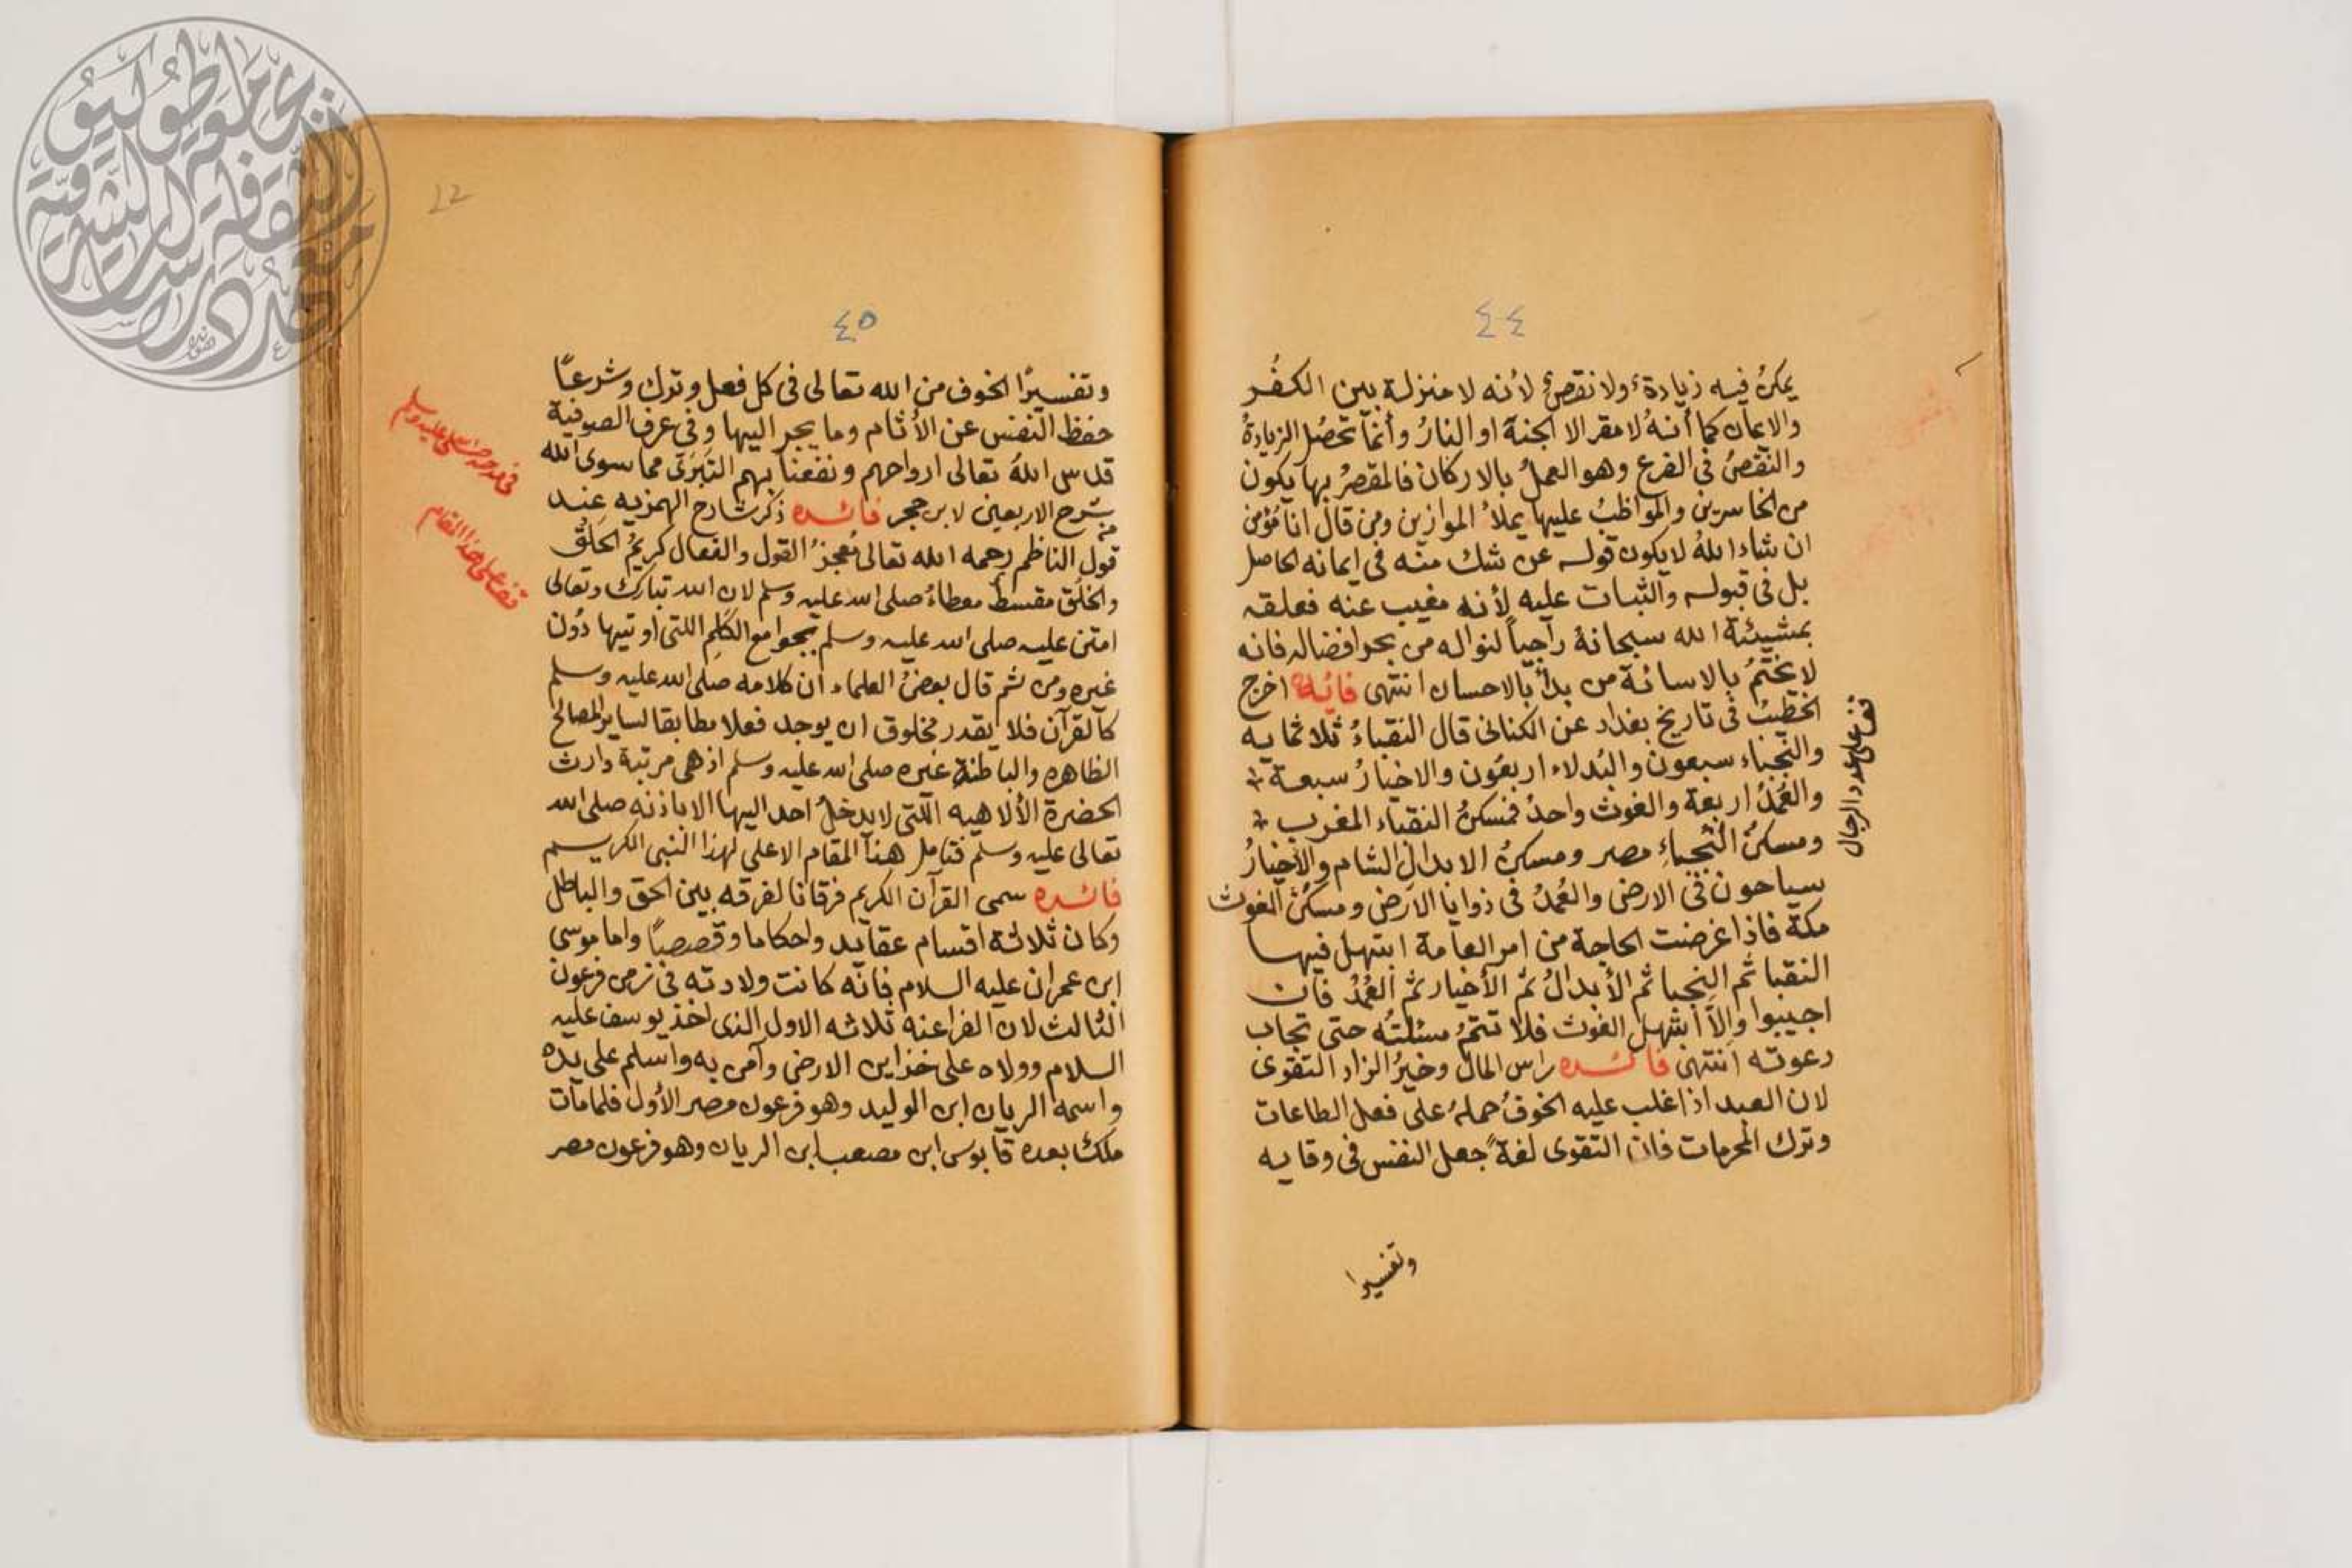 ٤٤
يمكنُ فيه زيادةٌ ولا نقصٌ لأنه لا منزلة بين الكفُر
والايمان كما أنهُ لا مقر الا الجنة او النارُ وأنما تحصُل الزيادةُ
والنقصُ في الفرع وهو العملُ بالاركان فالمقصرُ بها يكون
من الخاسرين والمواظبُ عليها يملأ الموازين ومن قال انا مؤمن
ان شاء اللهُ لا يكون قوله عن شك منه في ايمانه الحاصل
بل في قبوله والثبات عليه لأنه مغيب عنه فعلقه
بمشيئة الله سبحانهُ راجياً لنواله من بحر افضاله فانه
لا يختمُ بالاسائة من بدأ بالاحسان انتهى فائده اخرج
الخطيبُ في تاريخ بغداد عن الكناني قال النقباءُ ثلاثمايه
والنجباء سبعون والبُدلاء اربعُون والاخيارُ سبعة
والعُمُدُ اربعة والغوث واحدُ فمسكنُ النقباء المغرب
ومسكنُ النُجباءِ مصر ومسكنُ الابدال الشام والأخيارُ
سياحون في الارض والعُمدُ في زوايا الارض ومسكنُ الغوث
مكة فاذا عرضت الحاجة من امر العامة ابتهل فيها
النقبا ثم النجبا ثم الأبدالُ ثم الأخيار ثم العُمُدُ فان
اجيبوا وإلاّ ابتهل الغوث فلا تتمُ مسئلتُه حتى تجاب
دعوته انتهى فائده راس المال وخيرُ الزاد التقوى
لان العبد اذا غلب عليه الخوفُ حملهُ على فعل الطاعات
وترك المحرمات فان التقوى لغةً جعل النفس في وقايه
وتفسيرا
قف على عدد الرجال
٤٥
٢٢
وتفسيرًا الخوف من الله تعالى في كل فعل وترك وشرعاً
حفظ النفس عن الأثام وما يجر اليها وفي عرف الصوفية
قدس اللهُ تعالى ارواحهم ونفعنا بهم التبرّى مما سوى الله
شرح الاربعين لابن حجر فائده ذكر شارح الهمزيه عند
قول الناظم رحمه الله تعالى مُعجزُ القول والفعال كريمُ الخلُق
والخلق مقسط معطاءُ صلى الله عليه وسلم لان الله تبارك وتعالى
امتن عليه صلى الله عليه وسلم بجوامع الكلِم اللتى اوتيها دُون
غيره ومن ثم قال بعضُ العلماء ان كلامه صلى الله عليه وسلم
كالقرآن فلا يقدر مخلوق ان يوجد فعلا مطابقا لساير المصالح
الظاهره والباطنة غيره صلى الله عليه وسلم اذ هي مرتبة وارث
الحضرة الألاهيه اللتى لا يدخلُ احد اليها الا باذنه صلى الله
تعالى عليه وسلم فتامل هذا المقام الاعلى لهذا النبى الكريم
فائده سمى القرآن الكريم فرقانا لفرقه بين الحق والباطل
وكان ثلاثة اقسام عقايد واحكاما وقصصاً واما موسى
ابن عمران عليه السلام فانه كانت ولادته في زمن فرعون
الثالث لان الفراعنه ثلاثه الاول الذى اخذ يوسف عليه
السلام وولاه على خزاين الارض وآمن به واسلم على يده
واسمه الريان ابن الوليد وهو فرعون مصر الأول فلما مات
ملك بعده قابوس ابن مصعب ابن الريان وهو فرعون مصر
قف على هذا المقام